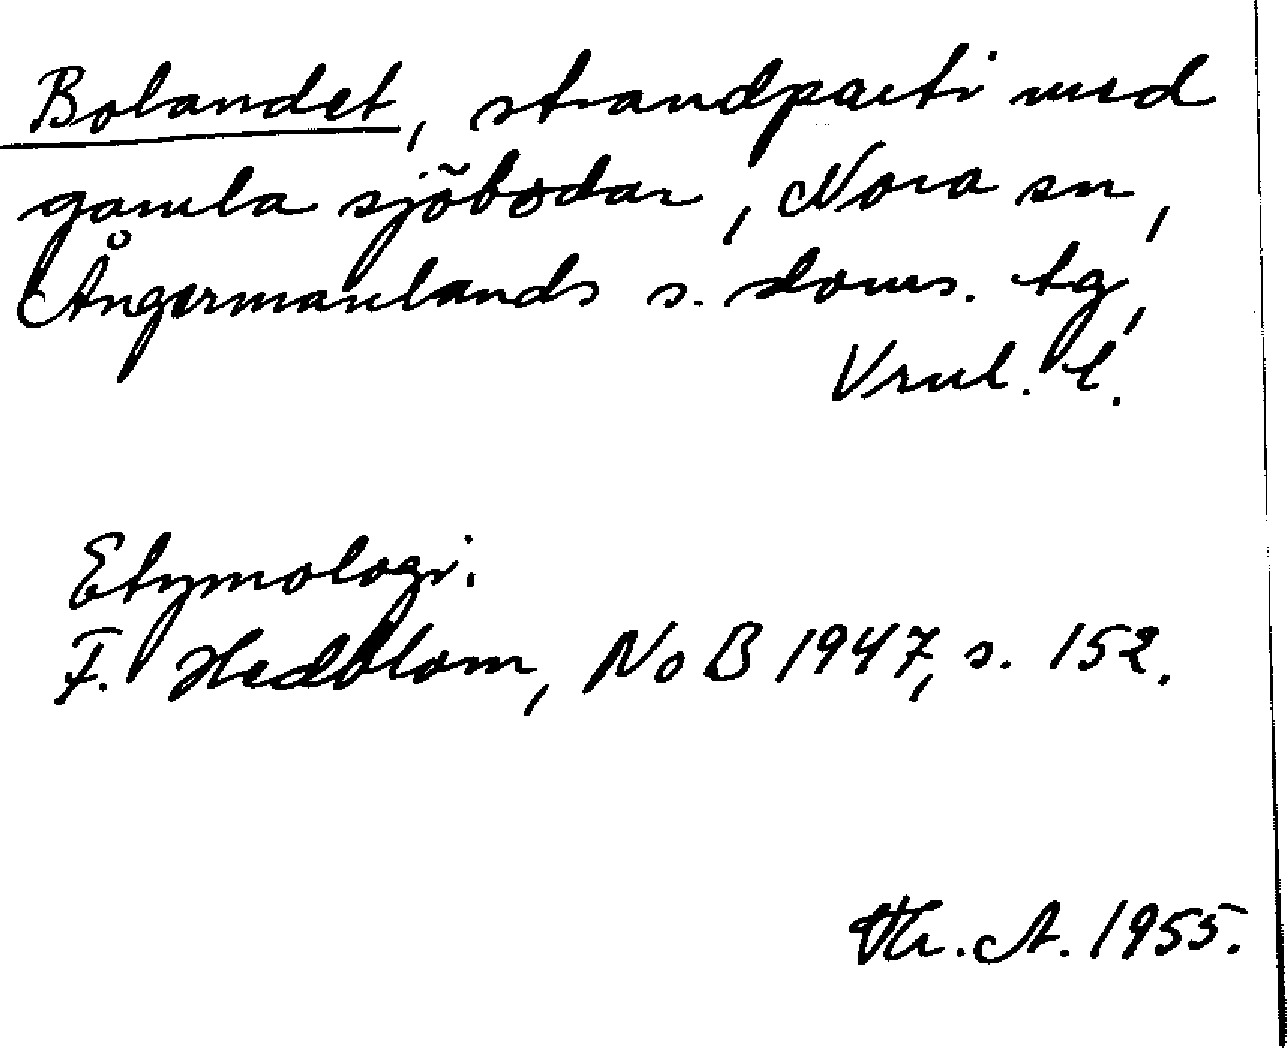 Bolandet, strandparti med
gamla sjöbodar, Nora sn,
Ångermanlands s. doms. tg,
Vrnl. l.
Etymologi.
F. Hedblom, NoB 1947, s. 152.
Th. A. 1955.